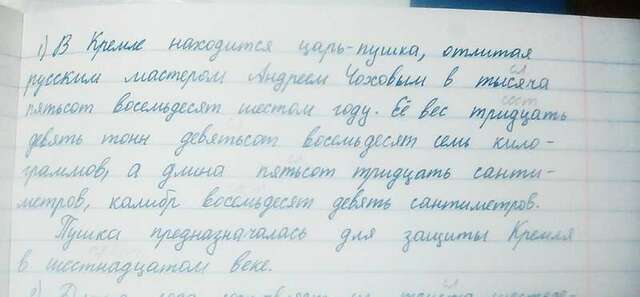 1) В Кремле находится царь-пушка, отлитая
русским мастером Андреем Чоховым в тысяча
пятьсот восемьдесят шестом году. Её вес тридцать
девять тонн девятьсот восемьдесят семь кило-
граммов, а длина пятьсот тридцать санти-
метров, калибр восемьдесят девять сантиметров.
Пушка предназначалась для защиты Кремля
в шестнадцатом веке.